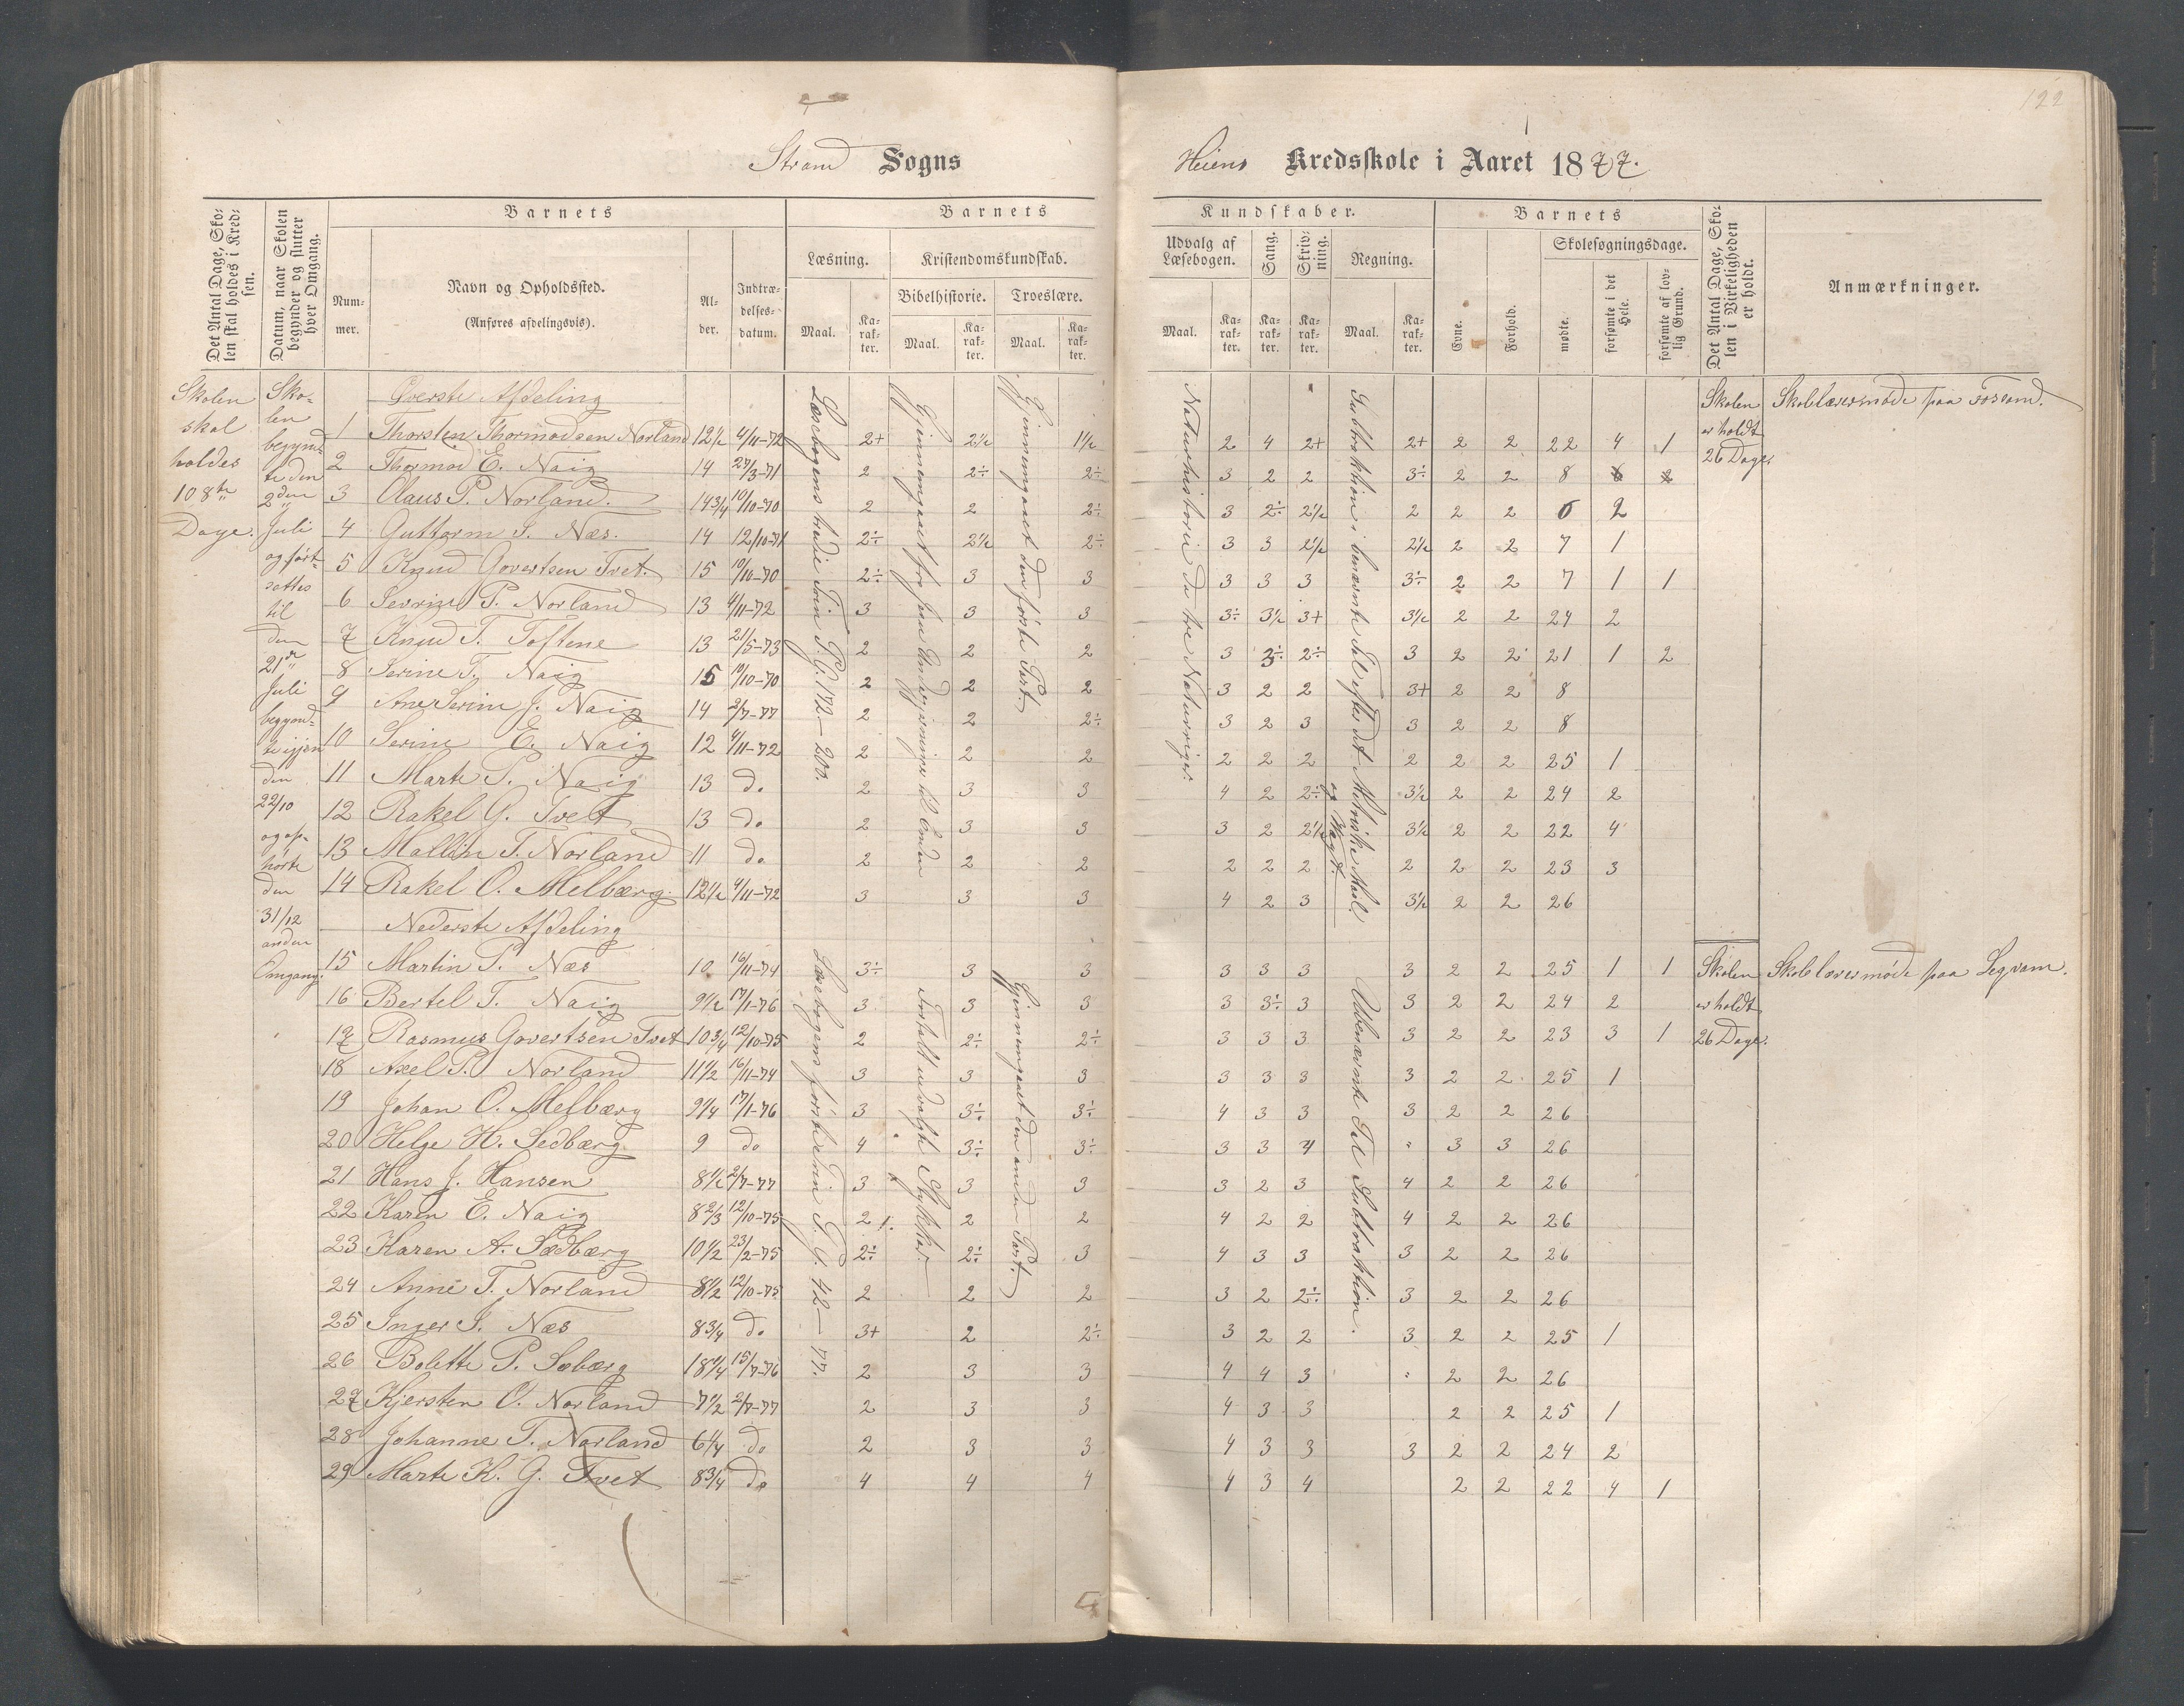 122
Strand Sogns
Heiens Kredsskole i Aaret 1877.
Det Antal Dage, Skolen skal holdes i Kredsen.
Datum, naar Skolen begynder og slutter hver Omgang.
Barnets
Nummer.
Navn og Opholdssted.
(Anføres afdelingsvis).
Alder.
Indtrædelsesdatum.
Barnets
Læsning.
Maal.
Karakter.
Kristendomskundskab.
Bibelhistorie.
Maal.
Karakter.
Troeslære.
Maal.
Karakter.
Kundskaber.
Udvalg af Læsebogen.
Maal.
Karakter.
Sang.
Karakter.
Skrivning.
Karakter.
Regning.
Maal.
Karakter.
Barnets
Evne.
Forhold.
Skolesøgningsdage.
mødte.
forsømte i det Hele.
forsømte af lovlig Grund.
Det Antal Dage, Skolen i Virkeligheden er holdt.
Anmærkninger.
Skolen skal holdes 108te Dage.
Skolen begyndte den 2den Juli og fortsattes til den 21de Juli begyndte igjen den 22/10 og ophørte den 31/12 anden Omgang.
Øverste Afdeling
Læsebogens tredie Trin P. G. 172-200.
Gjennemgaaet fra Begyndelsen til Enden
Gjennemgaaet den første Part.
Naturhistorie de tre Naturriger.
Subtraktion i benævnte Tal efter det Metriske Maal og Vægt.
Skolen er holdt 26 Dage.
Skolelærermøde paa Fossand.
1 Thorsten Thormodsen Norland 12½ 4/11-72 2+ 2½ 1½ 2 4 2+ 2+ 2 2 22 4 1
2 Thormod E. Naig 14 27/3-71 2 2÷ 2÷ 3 2 2 3÷ 2 2 8
3 Olaus P. Norland. 14 3/4 10/10-70 2 2 2÷ 3 2÷ 2½ 2 2 2 6 2
4 Guttorm S. Næs. 14 12/10-71 2÷ 2½ 2÷ 3 3 2½ 2½ 2 2 7 1
5 Knud Govertsen Tvet. 15 10/10-70 2÷ 3 3 3 3 3 3÷ 2 2 7 1 1
6 Sevrine P. Norland 13 4/11-72 3 3 3 3÷ 3½ 3+ 3½ 2 2 24 2
7 Knud T. Toftene 13 21/5-73 2 2 2 3 3÷ 2÷ 3 2 2 21 1 2
8 Serine T. Naig 15 10/10-70 2 2 2 3 2 2 3+ 2 2 8
9 Ane Serine J. Naig 14 2/7-77 2 2 2÷ 3 2 3 3 2 2 8
10 Serine E. Naig 12 4/11-72 2 2 2 2 2 2 2 2 2 25 1
11 Marte P. Naig 13 do 2 3 3 4 2 2÷ 3½ 2 2 24 2
12 Rakel G. Tvet 13 do 2 3 3 3 2 2½ 3½ 2 2 22 4
13 Mallin T. Norland 11 do 2 2 2 2 2 2 2 2 2 23 3
14 Rakel O. Melbærg. 12½ 4/11-72 3 3 3 4 2 3 3½ 2 2 26
Nederste Afdeling
Læsebogens første Trin P. G. 42-77.
Fortalt udvalgte Stykker.
Gjennemgaaet den anden Part.
Ubenævnte Tal Subtraktion.
Skolen er holdt 26 Dage.
Skolelærermøde paa
15 Martin S. Næs 10 16/11-74 3÷ 3 3 3 3 3 3 2 2 25 1 1
16 Bertel T. Naig 9½ 17/1-76 3 3 3 3 3÷ 3 3 2 2 24 2
17 Rasmus Govertsen Tvet 10 3/4 12/10-75 2 2÷ 2÷ 3 3 3 3 2 2 23 3 1
18 Axel P. Norland 11½ 16/11-74 3 3 3 3 3 3 3 2 2 25 1
19 Johan O. Melbærg 9¼ 17/1-76 3 3÷ 3÷ 4 3 3 3 2 2 26
20 Helge H. Sedbærg. 9 do 4 3÷ 3÷ 3 3 4 " 3 3 26
21 Hans J. Hansen 8½ 2/7-77 3 3 3 3 2 3 4 2 2 26
22 Karen E. Naig 8 2/3 12/10-75 2 2 2 4 2 2 4 2 2 26
23 Karen A. Sedbærg 10½ 23/2-75 2÷ 2÷ 3 4 3 3 3 2 2 26
24 Anne T. Norland 8½ 12/10-75 2 2 2 3 2 2÷ 3 2 2 26
25 Inger S. Næs 8 3/4 do 3+ 2 2÷ 3 2 2 3 2 2 25 1
26 Bolette P. Sæbærg 15/7-76 2 3 3 4 4 3 " 2 2 26
27 Kjersten O. Norland 7½ 2/7-77 2 3 3 4 3 3 2 2 25 1
28 Johanne T. Norland 6¼ do 2 3 3 4 3 3 3 2 2 24 2
29 Marte K. G. Tvet 8 3/4 do 4 4 4 4 3 4 2 2 22 4 1